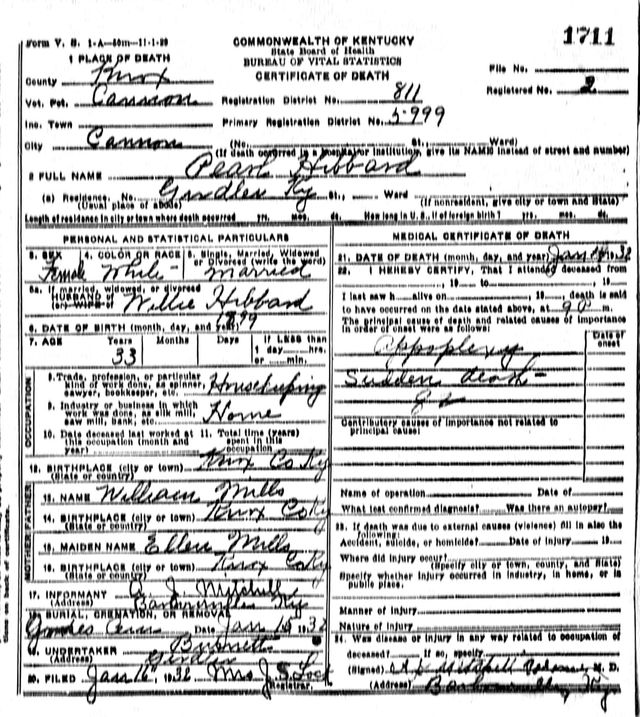 1711
Form V. S. 1-A-50m-11-1-29
COMMONWEALTH OF KENTUCKY
State Board of Health
BUREAU OF VITAL STATISTICS
CERTIFICATE OF DEATH
1 PLACE OF DEATH
County Knox
File No.
Vot. Pct. Cannon
Registration District No. 811
Registered No. 2
Inc. Town
Primary Registration District No. 5-999
City Cannon (No. St., Ward)
(If death occurred in a hospital or institution, give its NAME instead of street and number)
2 FULL NAME Pearl Hibbard
(a) Residence. No. Ky St., Ward
(Usual place of abode) (If nonresident, give city or town and State)
Length of residence in city or town where death occurred yrs. mos. ds. How long in U. S., if of foreign birth? yrs. mos. ds.
PERSONAL AND STATISTICAL PARTICULARS
3. SEX 4. COLOR OR RACE 5. Single, Married, Widowed
or Divorced (write the word)
Female White Married
5a. If married, widowed, or divorced
HUSBAND of
(or) WIFE of Willie Hibbard
6. DATE OF BIRTH (month, day, and year) 1899
7. AGE Years Months Days If LESS than
1 day hrs.
or min.
33
OCCUPATION
8. Trade, profession, or particular
kind of work done, as spinner,
sawyer, bookkeeper, etc. Housekeeping
9. Industry or business in which
work was done, as silk mill,
saw mill, bank, etc. Home
10. Date deceased last worked at
this occupation (month and
year)
11. Total time (years)
spent in this
occupation
12. BIRTHPLACE (city or town) Knox Co Ky
(State or country)
FATHER
13. NAME William Mills
14. BIRTHPLACE (city or town) Knox Co Ky
(State or country)
MOTHER
15. MAIDEN NAME Ellen Mills
16. BIRTHPLACE (city or town) Knox Co Ky
(State or country)
17. INFORMANT Mitchell
(Address) Barbourville Ky
18. BURIAL, CREMATION, OR REMOVAL
Date Jan 15 1932
19. UNDERTAKER
(Address)
20. FILED Jan 16, 1932 Mrs J. S. Lock
Registrar.
MEDICAL CERTIFICATE OF DEATH
21. DATE OF DEATH (month, day, and year) Jan 14 1932
22. I HEREBY CERTIFY, That I attended deceased from
, 19 to , 19
I last saw h alive on , 19 , death is said
to have occurred on the date stated above, at m.
The principal cause of death and related causes of importance
in order of onset were as follows:
Date of
onset
Appoplexy
Sudden death
Contributory causes of importance not related to
principal cause:
Name of operation Date of
What test confirmed diagnosis? Was there an autopsy?
23. If death was due to external causes (violence) fill in also the
following:
Accident, suicide, or homicide? Date of injury 19
Where did injury occur?
(Specify city or town, county, and State)
Specify whether injury occurred in industry, in home, or in
public place.
Manner of Injury
Nature of Injury
24. Was disease or injury in any way related to occupation of
deceased? If so, specify
(Signed) Mitchell M. D.
(Address) Barbourville, Ky